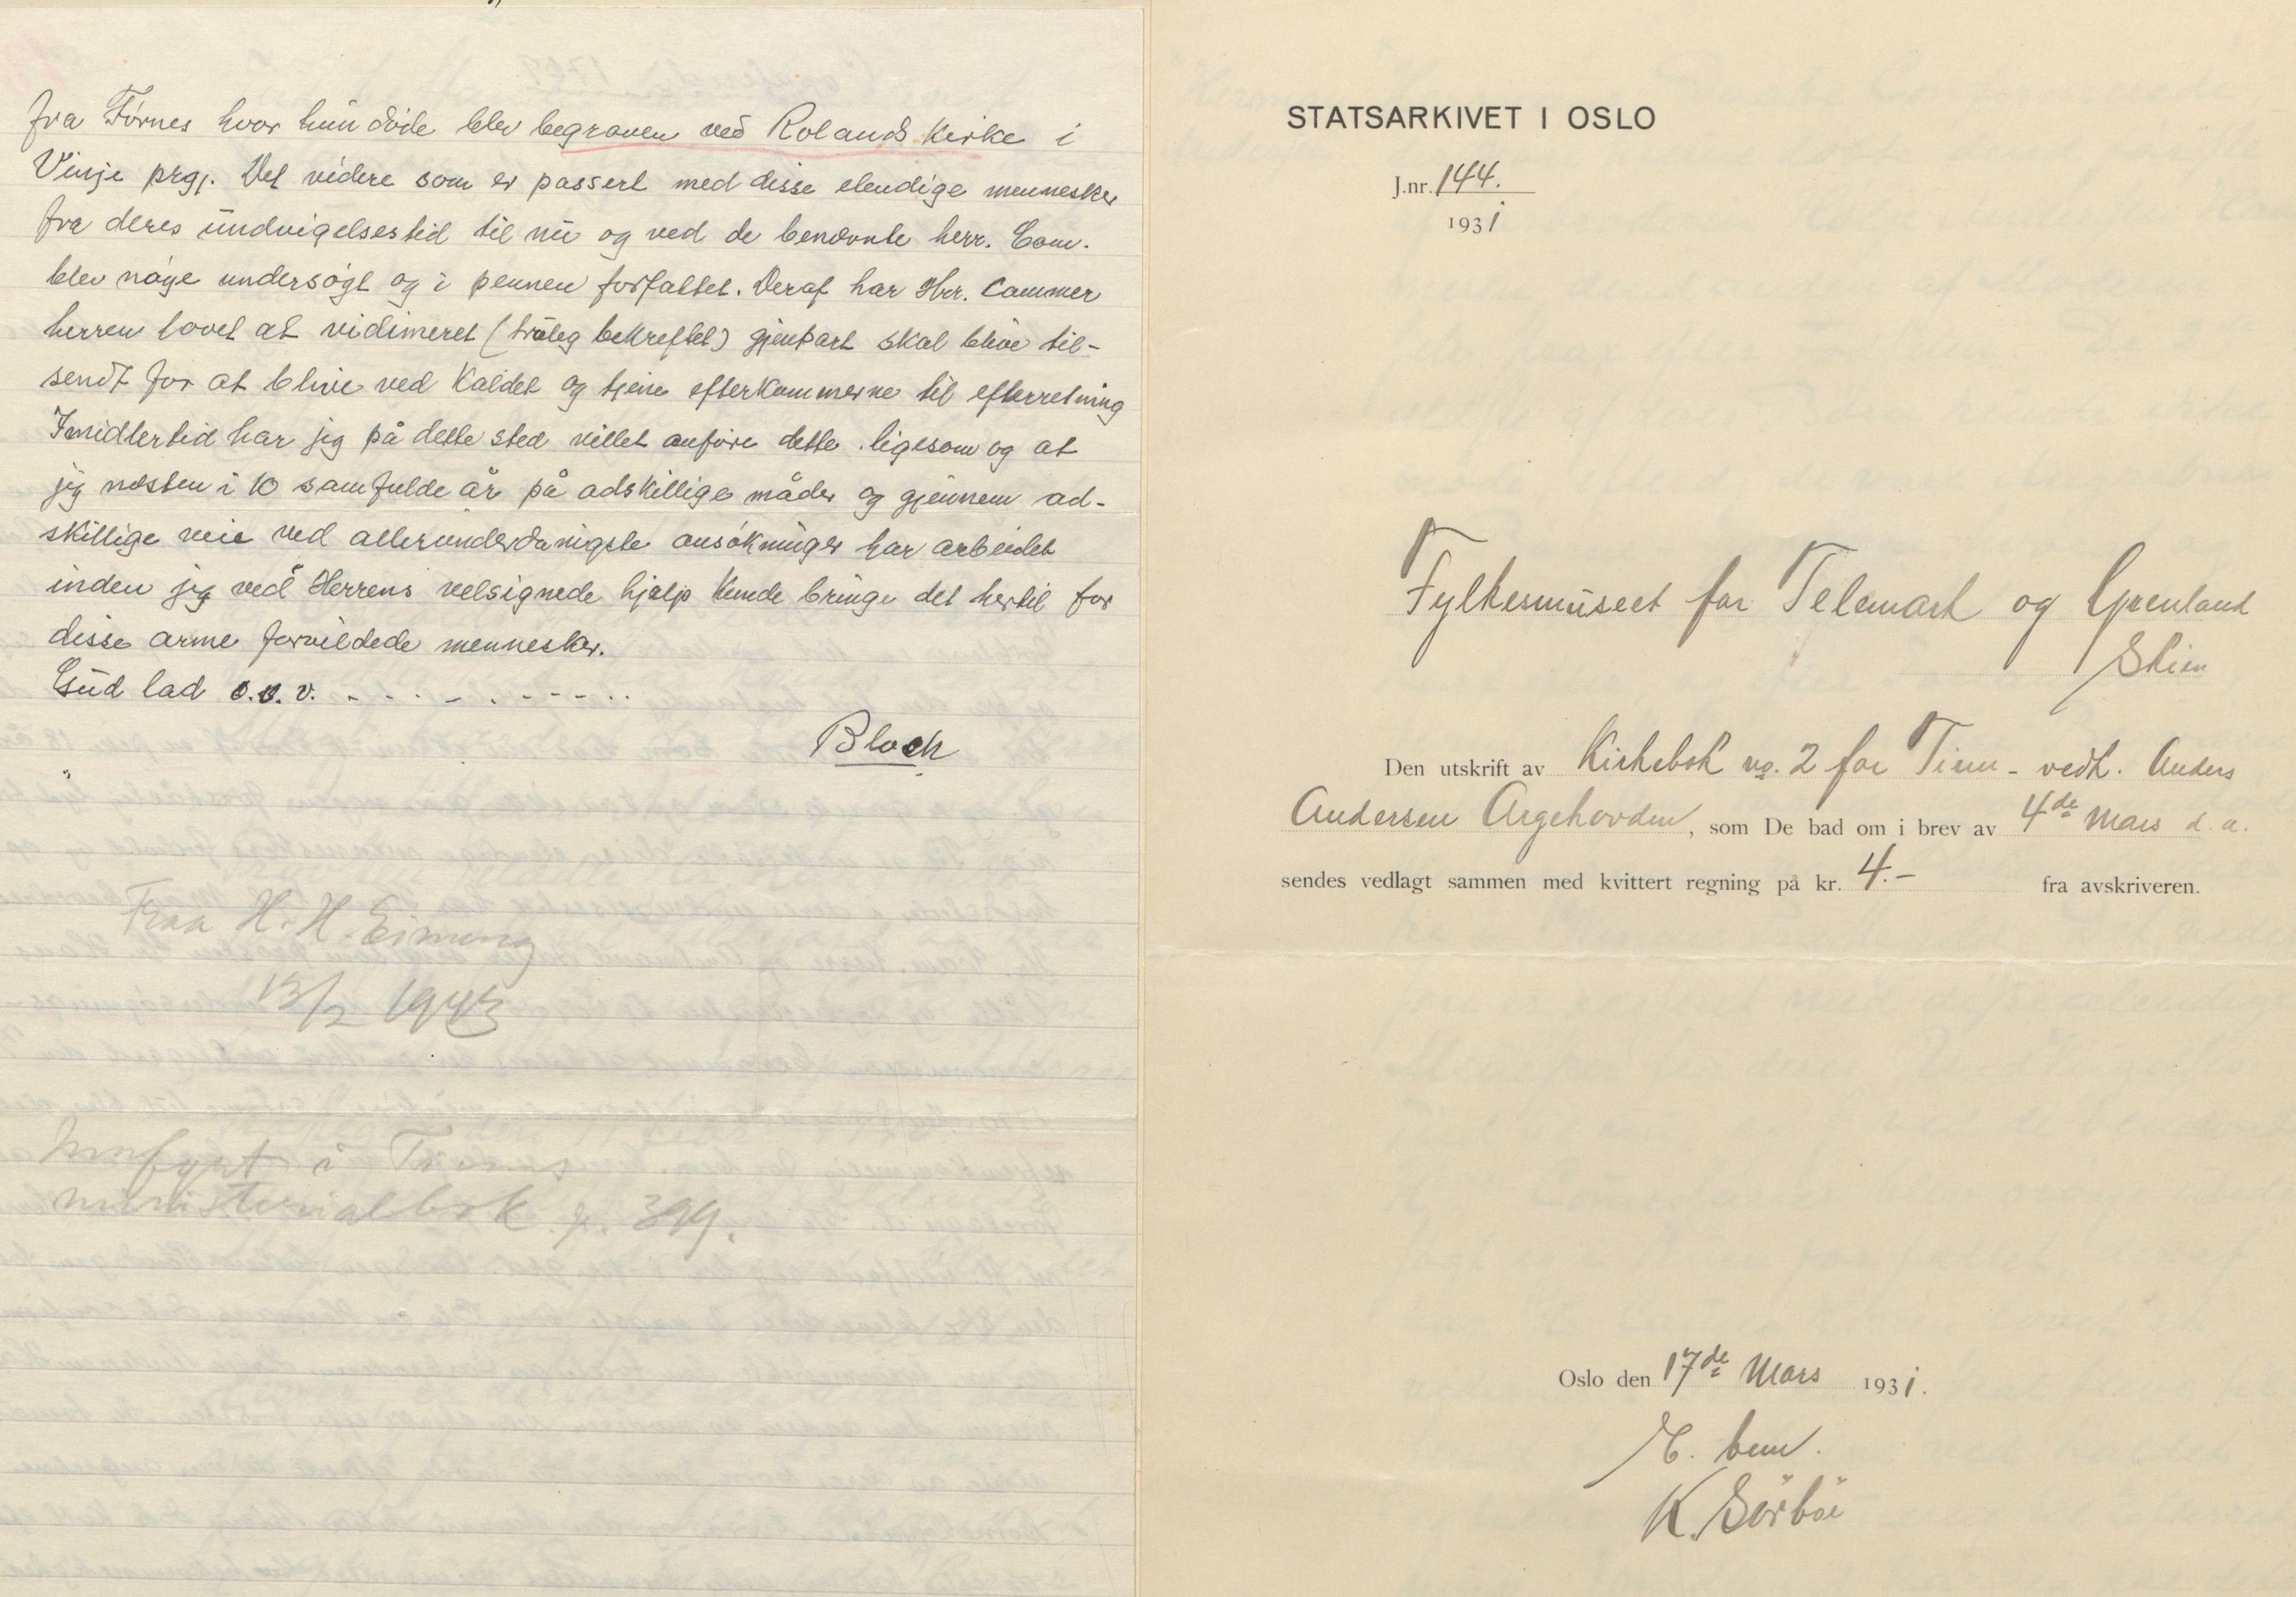 fra Förnes hvor hun döde blev begraven ved Rolands Kirke i
Vinje prgj. Det videre som er passert med disse elendige mennesker
fra deres undvigelsestid til nu og ved de benævnte herr. Com.
blev nöye undersögt og i pennen forfattet. Deraf har Hrr. Cammer
herren lovet at vidimeret (truleg bekreftet) gjenpart skal blive til-
sendt for at blive ved Kaldet og tjene efterkommerne til efterretning
Imidlertid har jeg på dette sted villet anföre dette. ligesom og at
jeg næsten i 10 samfulde år på adskillige måder og gjennem ad-
skillige veie ved allerunderdanigste ansökninger har arbeidet
inden jeg ved Herrens velsignede hjælp kunde bringe det hertil for
disse arme forvildede mennesker.
Gud lad o.s.v. - - - - - - - - - -
Bloch
Fraa H. H. Einung
13/2 1943
Innfört i Tinns
ministerialbok p. 399.
STATSARKIVET I OSLO
J.nr. 144.
1931
Fylkesmuseet for Telemark og Grenland
Skien
Den utskrift av Kirkebok no. 2 for Tinn - vedk. Anders
Andersen Argehovden, som De bad om i brev av 4de Mars d. a.
sendes vedlagt sammen med kvittert regning på kr. 4.- fra avskriveren.
Oslo den 17de Mars 1931.
E. bem.
K. Sörbö